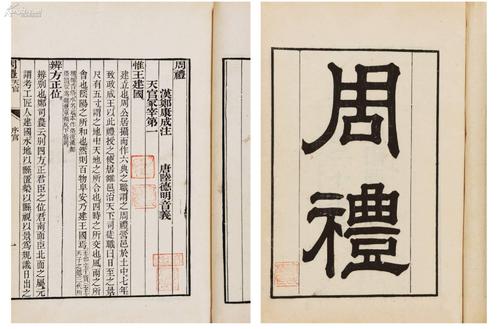 周禮
天官冢宰第一
漢鄭康成注
唐陸德明音義
惟王建國
建立也周公居攝而作六典之職謂之周禮營邑於土中七年
致政成王以此禮授之使居雒邑治天下司徒職曰日至之景
尺有五寸謂之地中天地之所合也四時之所交也風雨之所
會也陰陽之所和也然則百物阜安乃建王國焉
辨方正位
辨別也鄭司農云別四方正君臣之位君南面臣北面之屬玄
謂考工匠人建國水地以縣置槷以縣視以景為規識日出之
周禮
天官
序官
周禮